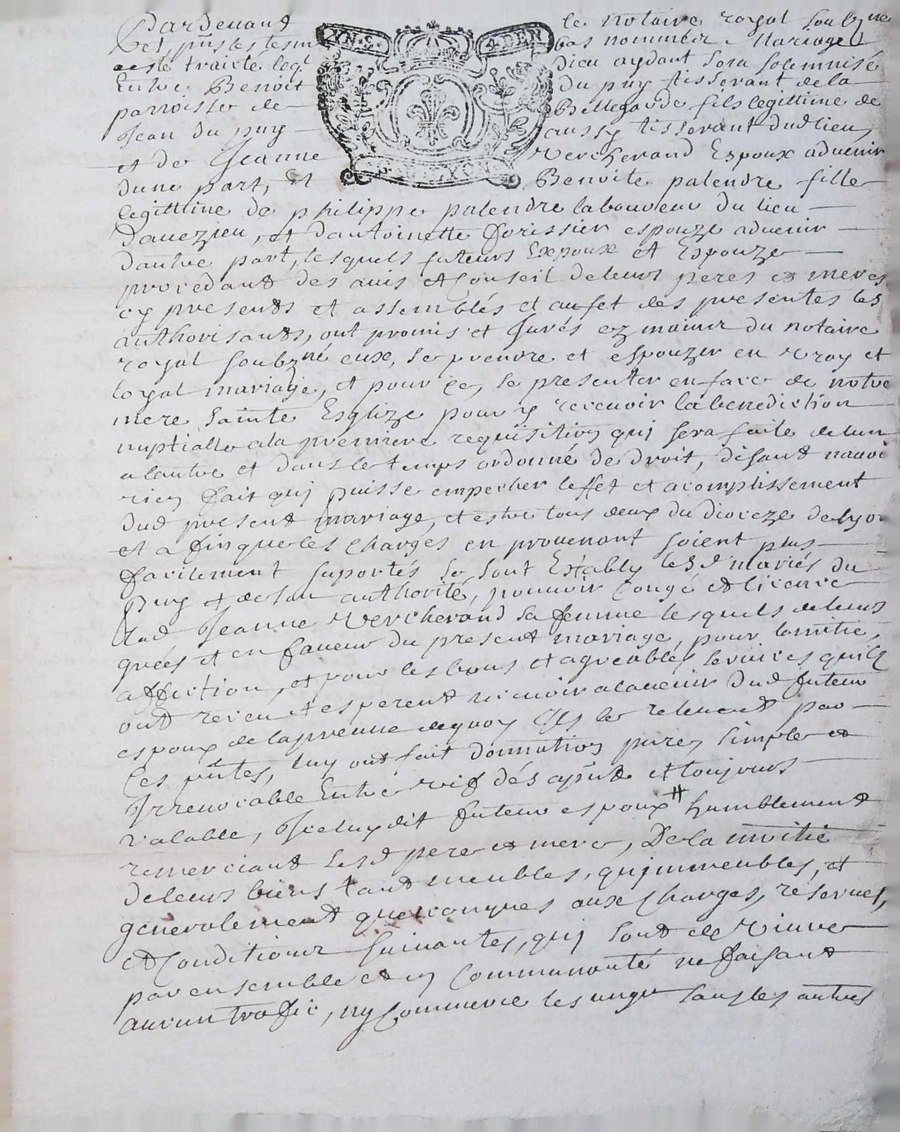 Pardevant le notaire royal soubzne
et pntes tesm bas nommez Mariage
a este traicte legt Dieu aydant sera solemnise
Entre Benoit du puy tisserant de la
parroisse de Bellegarde fils legittime de
Jean du puy aussy tisserant dud lieu,
et de Jeanne Vercherand Espoux advenir
dune part, et Benoite palendre fille
legittime de philippe palendre laboureur du lieu
Davezieu, et dantoinette forissier espouze advenir
dautre part, lesquels futeurs Expoux et Espouze
procedant des avis et conseil de leurs peres et meres
cy presents et assemblés et au fet des presentes les
authorisants, ont promis et jurés ez mains du notaire
royal soubzne euxe, se prendre et espouzer en vray et
loyal mariage, et pour ce, se presenter en face de notre
mere sainte Esglize pour y recevoir la benediction
nuptialle a la premiere requisition qui sera faite de lun
a lautre et dans le temps ordonné de droit, disant navoir
rien fait qui puisse empecher leffet et acomplissement
dud present mariage, et estre tous deux du dioceze de Lyon
et affin que les charges en provenant soient plus
facilement suportés se sont Establys les d mariés du
puy et de son authorité, pouvoir congé et licence
lad Jeanne Vercherand sa femme lesquels de leurs
grées et en faveur du present mariage, pour lamitié,
affection, et pour les bons et agreables services quils
ont receu et esperent recevoir a ladvenir dud futeur
espoux de la preuve de quoy ils le relevent par
ces pntes, luy ont fait donnation pure, simple et
Irrevocable Entre vif dés apnt et toujours
valable, Iceluy dit futeur espoux # humblement
remerciant sesd pere et mere, De la moitié
de leurs biens tant meubles, qu immeubles, et
generalement quelconques aux charges, reserves,
et Conditions suivantes, qui sont de Vivre
par ensemble et en Communauté ne faisant
aucun trafic, ny Commerce les ungs sans les autres
XN.S 4.DEN